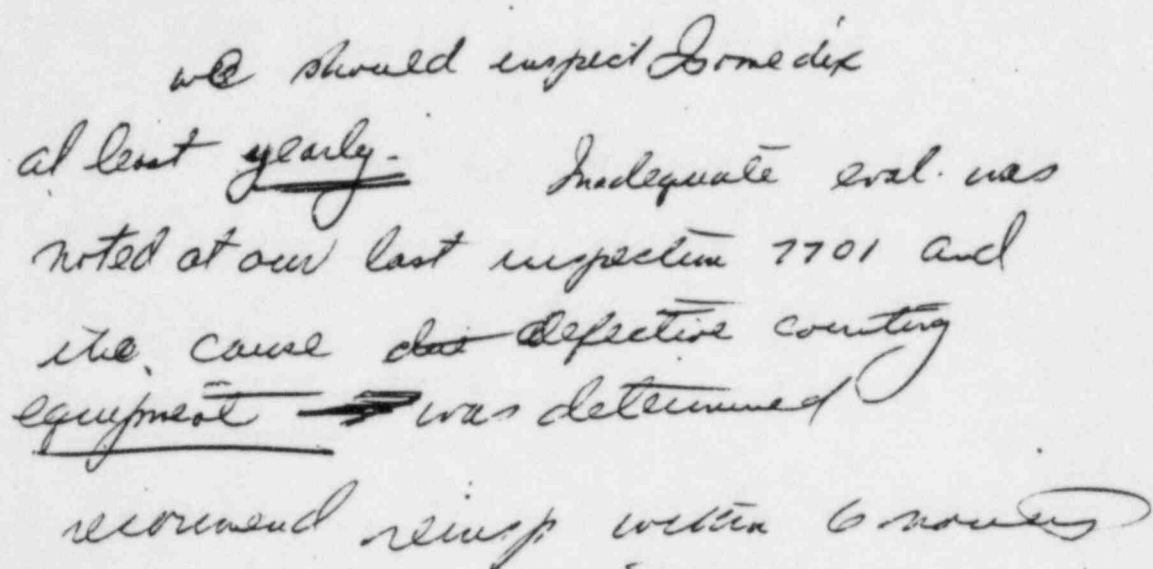 we should inspect Isomedix
at least yearly. Inadequate eval. was
noted at our last inspection 7701 and
the cause defective counting
equipment was determined
recommend reinsp within 6 months